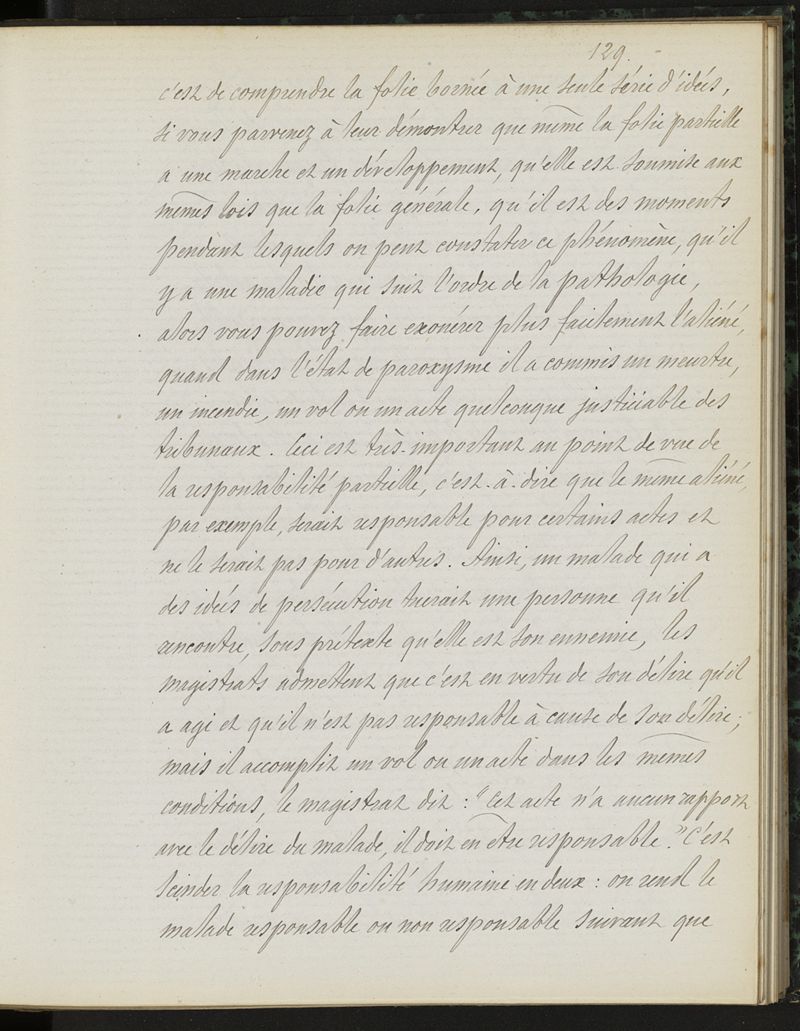 129.
c'est de comprendre la folie bornée à une seule série d'idées,
si vous parvenez à leur démontrer que même la folie partielle
a une marche et un développement, qu'elle est soumise aux
mêmes lois que la folie générale, qu'il est des moments
pendant lesquels on peut constater ce phénomène, qu'il
y a une maladie qui suit l'ordre de la pathologie,
alors vous pouvez faire exonérer plus facilement l'aliéné,
quand dans l'état de paroxysme il a commis un meurtre,
un incendie, un vol ou un acte quelconque justiciable des
tribunaux. Ceci est très-important au point de vue de
la responsabilité partielle, c'est-à-dire que le même aliéné,
par exemple, serait responsable pour certains actes et
ne le serait pas pour d'autres. Ainsi, un malade qui a
des idées de persécution tuerait une personne qu'il
rencontre, sous prétexte qu'elle est son ennemie, les
magistrats admettent que c'est en vertu de son délire qu'il
a agi et qu'il n'est pas responsable à cause de son délire;
mais il accomplit un vol ou un acte dans les mêmes
conditions, le magistrat dit : "Cet acte n'a aucun rapport
avec le délire du malade, il doit en être responsable." C'est
scinder la responsabilité humaine en deux : on rend le
malade responsable ou non responsable suivant que